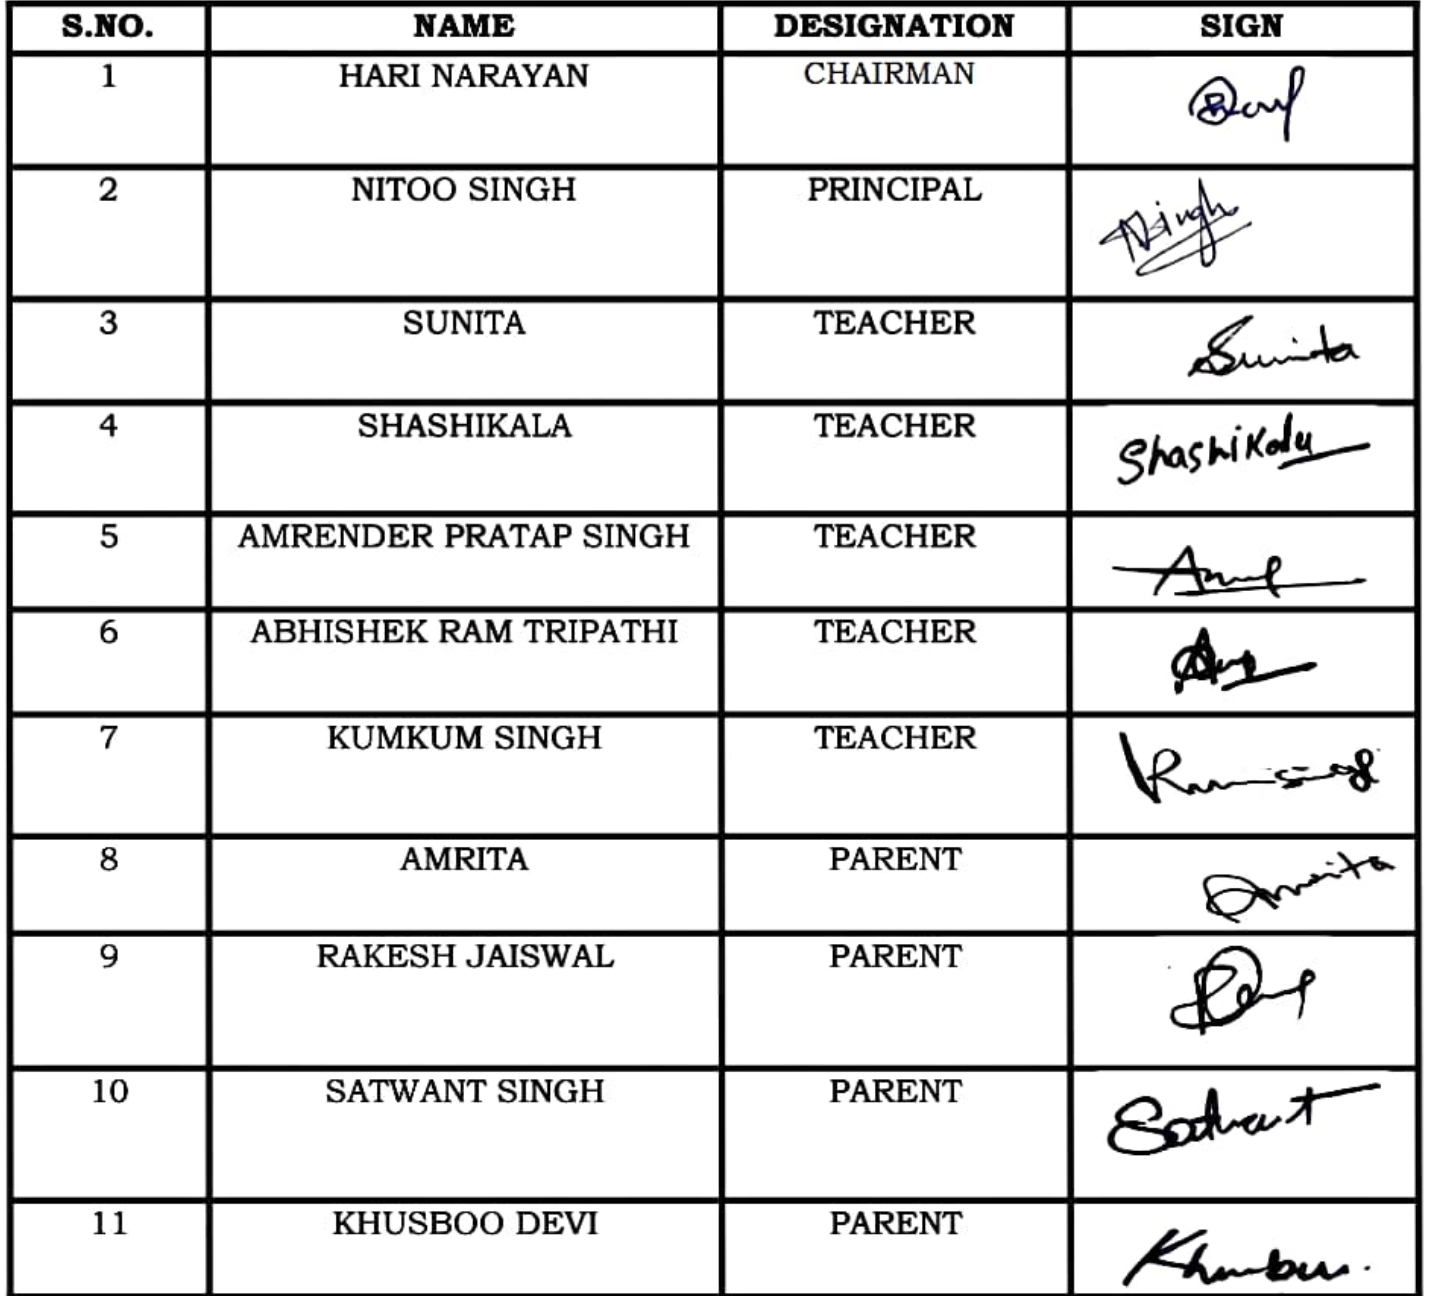 S.NO. NAME DESIGNATION SIGN
1 HARI NARAYAN CHAIRMAN
2 NITOO SINGH PRINCIPAL NSingh
3 SUNITA TEACHER Sunita
4 SHASHIKALA TEACHER Shashikala
5 AMRENDER PRATAP SINGH TEACHER
6 ABHISHEK RAM TRIPATHI TEACHER
7 KUMKUM SINGH TEACHER
8 AMRITA PARENT Amrita
9 RAKESH JAISWAL PARENT
10 SATWANT SINGH PARENT Satwant
11 KHUSBOO DEVI PARENT